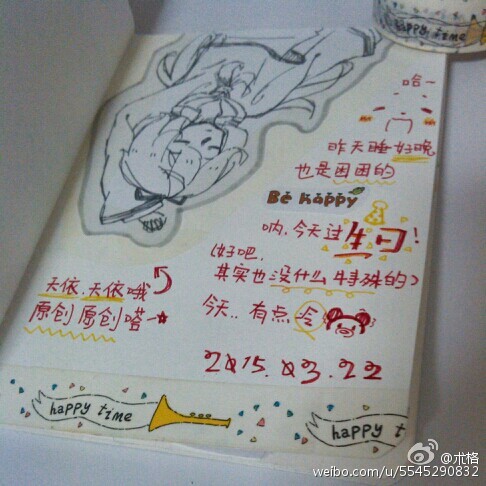 happy time
哈~
昨天睡好晚
也是困困的
Be happy
呐,今天过生日!
(好吧,
其实也没什么特殊的)
今天..有点冷
2015.03.22
天依..天依哦
原创原创嗒~
happy time
happy t
@术格
weibo.com/u/5545290832